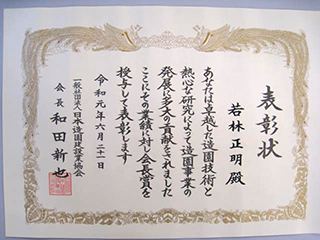 表彰状
若林正明殿
あなたは卓越した造園技術と
熱心な研究によって造園事業の
発展に多大の貢献をされました
ここにその業績に対し会長賞を
授与して表彰します
令和元年六月二十一日
一般社団法人日本造園建設業協会
会長 和田新也